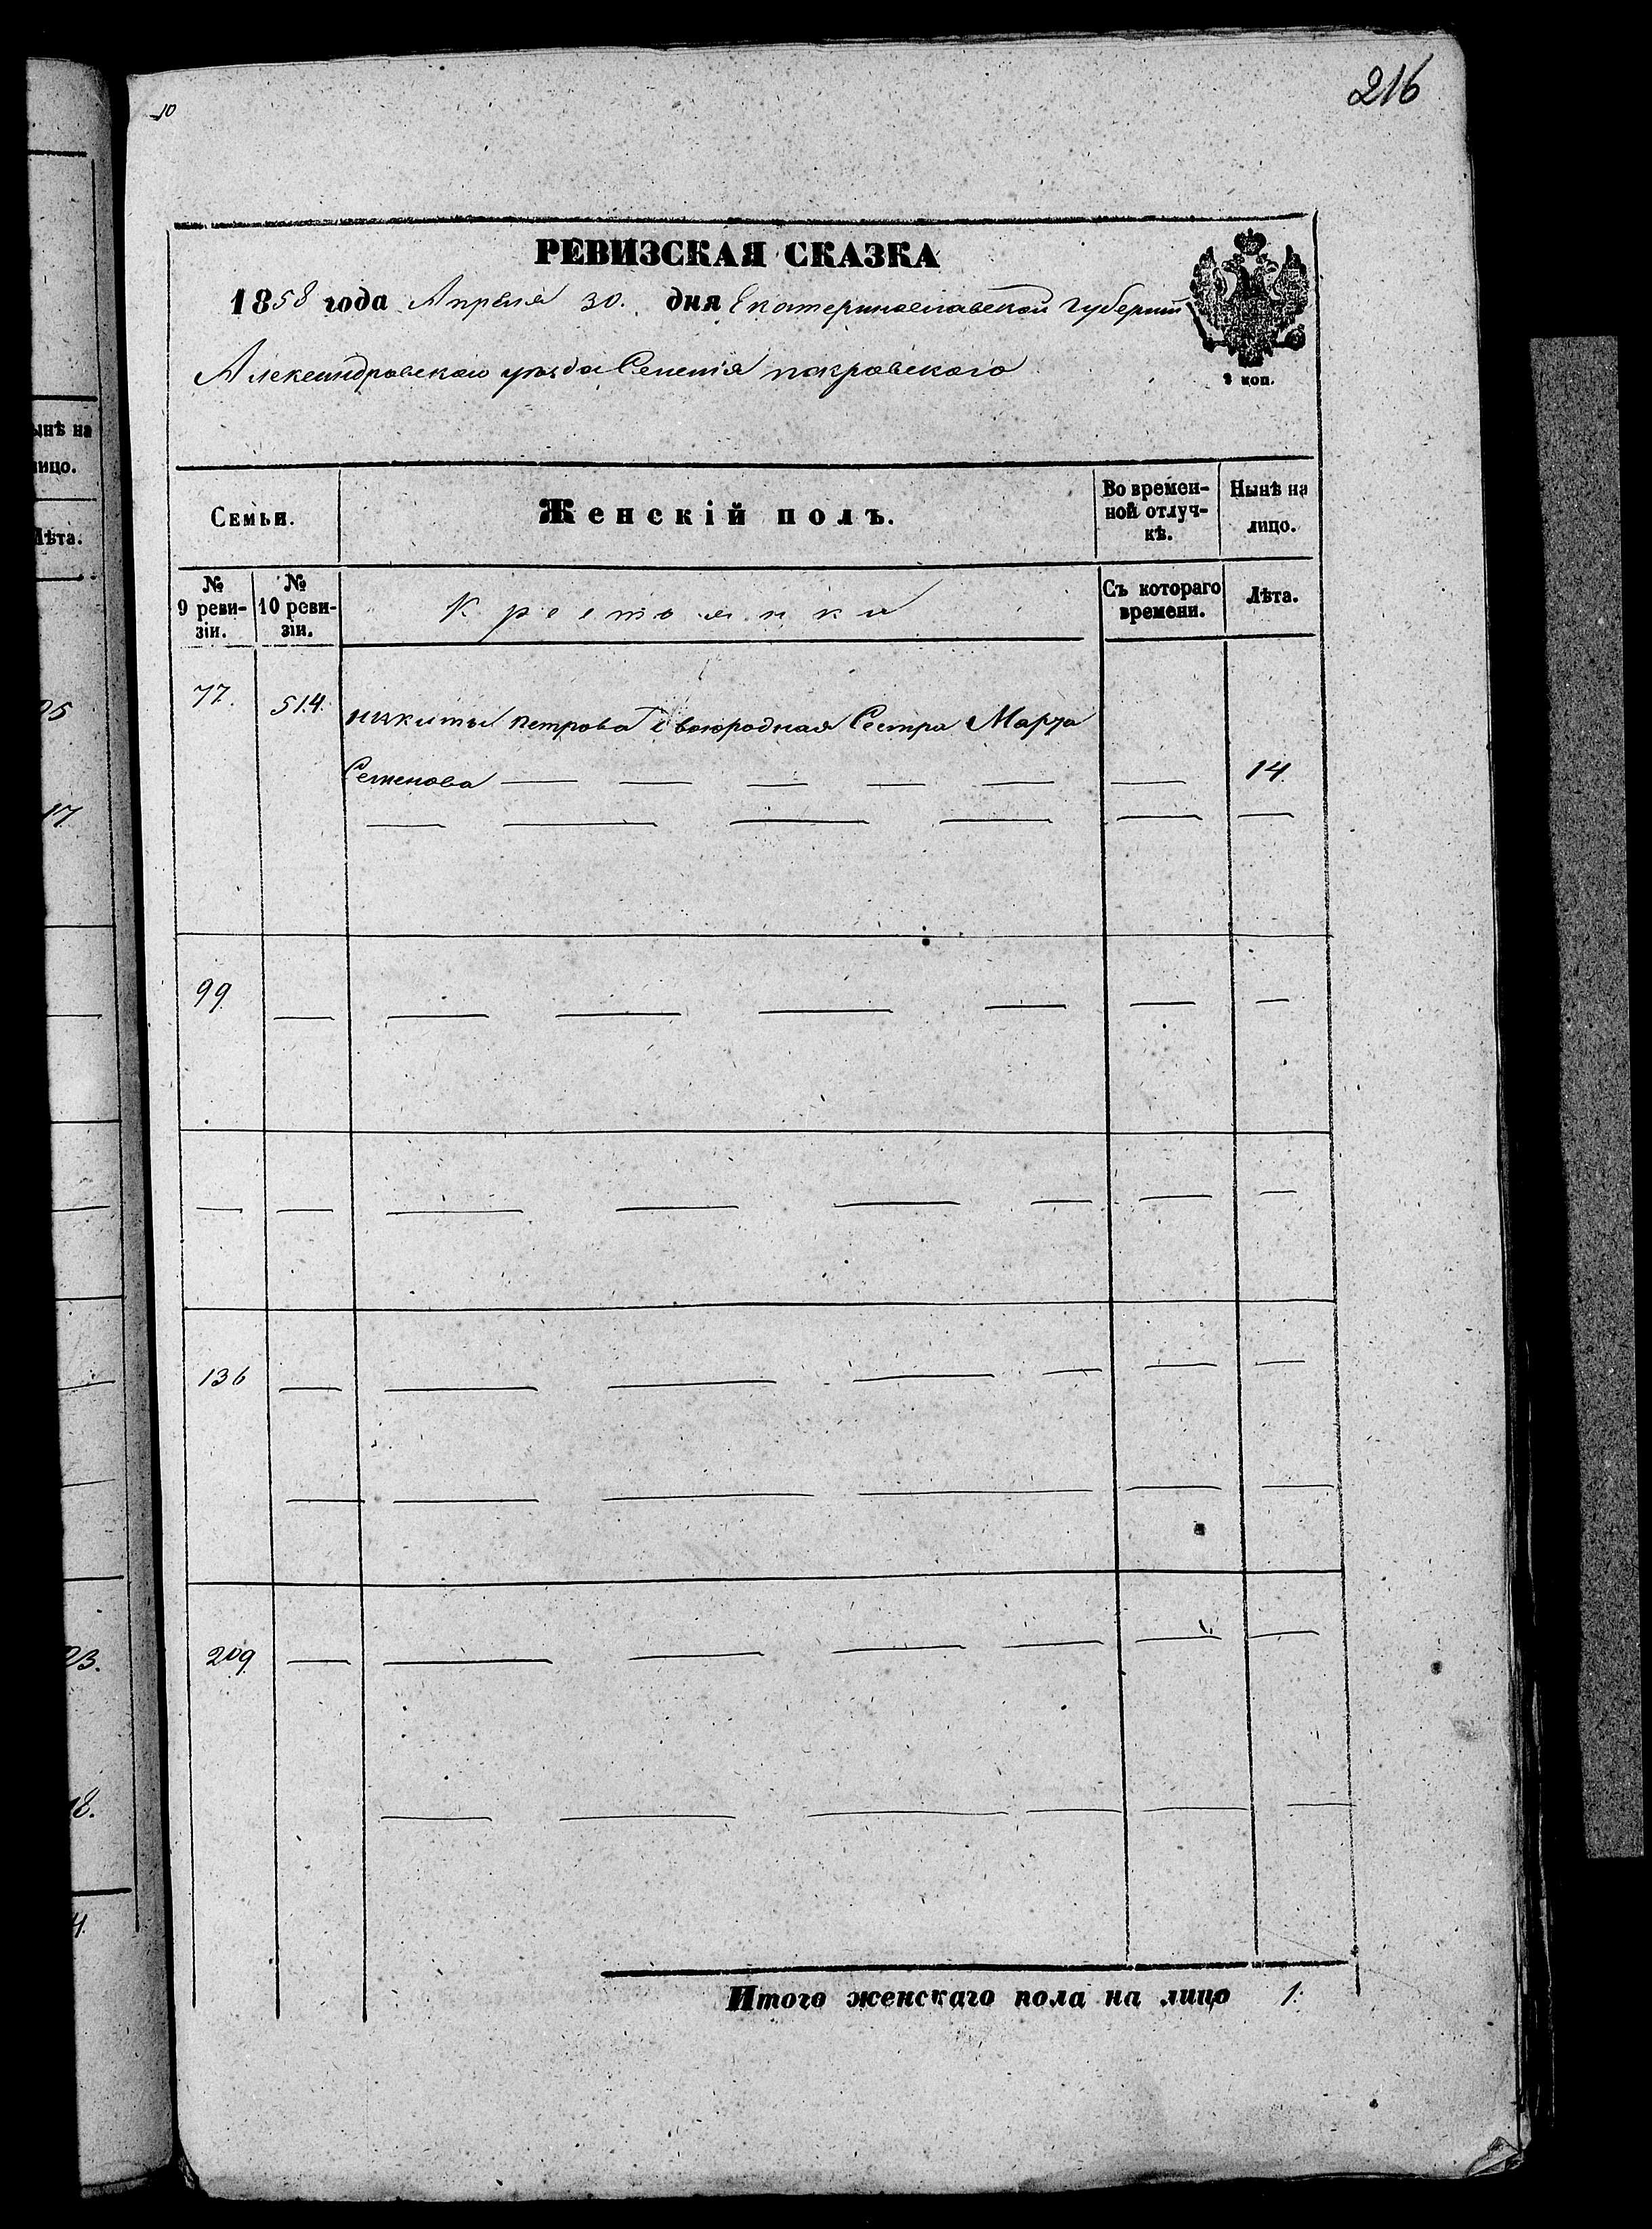 216
10
РЕВИЗСКАЯ СКАЗКА
1858 года Апреля 30. дня Екатеринославской губернии
Александровского уезда Селения покровского
2 коп.
Семьи.
Женскій полъ.
Во времен-
ной отлуч-
кѣ.
Нынѣ на
лицо.
№
9 реви-
зіи.
№
10 реви-
зіи.
Крестьянки
Съ котораго
времени.
Лѣта.
77.
514.
никиты петрова двоюродная Сестра Марфа
Семенова — — — — — — 14.
99.
136
209
Итого женскаго пола на лицо 1.
ынѣ на
ицо.
Лѣта.
17.
23.
18.